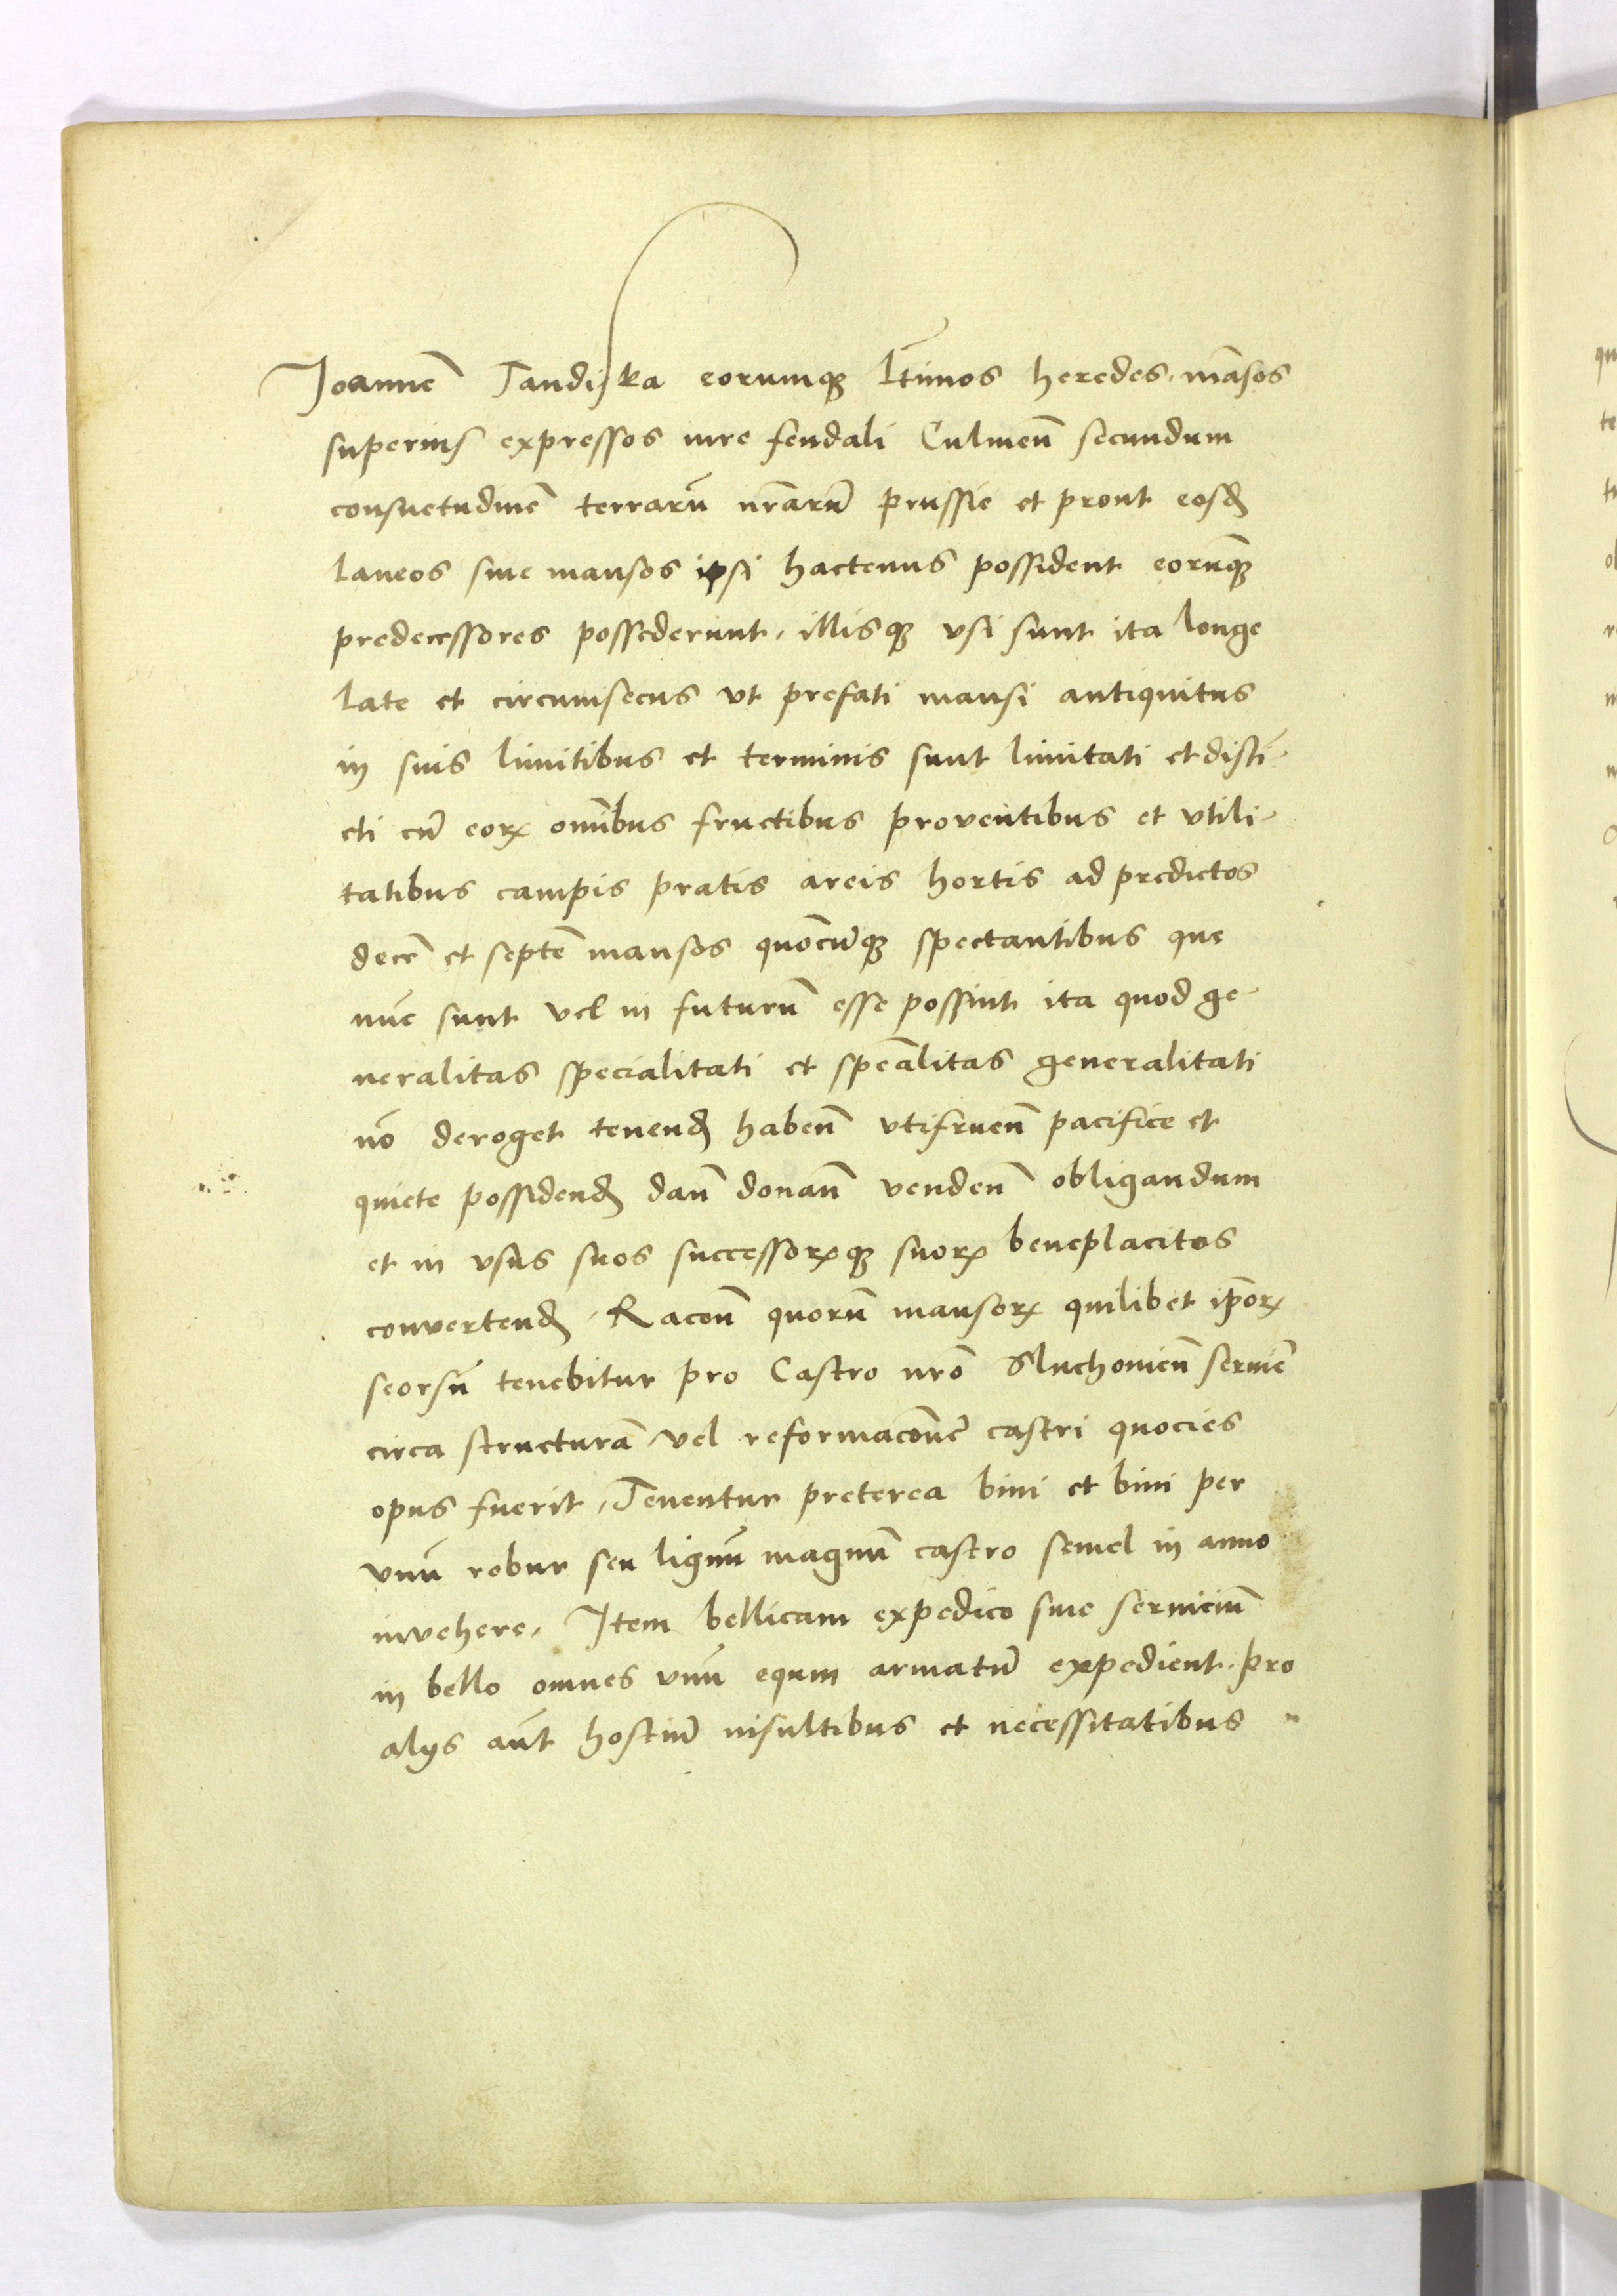 Joannē Tandiska eorumqꝫ ltīmos heredes, māsos
superius expressos iure feudali Culmeñ secundum
consuetudinē terrarū nr̄arū prussie et prout eosđ
laneos siue mansos ipsi hactenus possident eorūqꝫ
predecessores possederunt, illisqꝫ vsi sunt ita longe
late et circumsecus vt prefati mansi antiquitus
in suis limitibus et terminis sunt limitati et disti-
cti cū eorꝝ om̄ibus fructibus proventibus et vtili-
tatibus campis pratis areis hortis ad predictos
decē et septē mansos quōcūqꝫ spectantibus que
nūc sunt vel in futurū esse possint ita quod ge-
neralitas specialitati et speālitas generalitati
nō deroget tenenđ habeñ vtifrueñ pacifice et
quiete possidenđ dañ donañ vendeñ obligandum
et in vsus suos successorꝝqꝫ suorꝝ beneplacitos
convertenđ, Racōn quorū mansorꝝ quilibet ip̄orꝝ
seorsū tenebitur pro Castro nr̄o Sluchouieñ seruiē
circa structurā vel reformacōnē castri quocies
opus fuerit, Tenentur preterea bini et bini per
vnū robur seu lignū magnū castro semel in anno
invehere, Item bellicam expedico siue seruiciū
in bello omnes vnū equm armatū expedient, pro
alijs aūt hostiū insultibus et necessitatibus